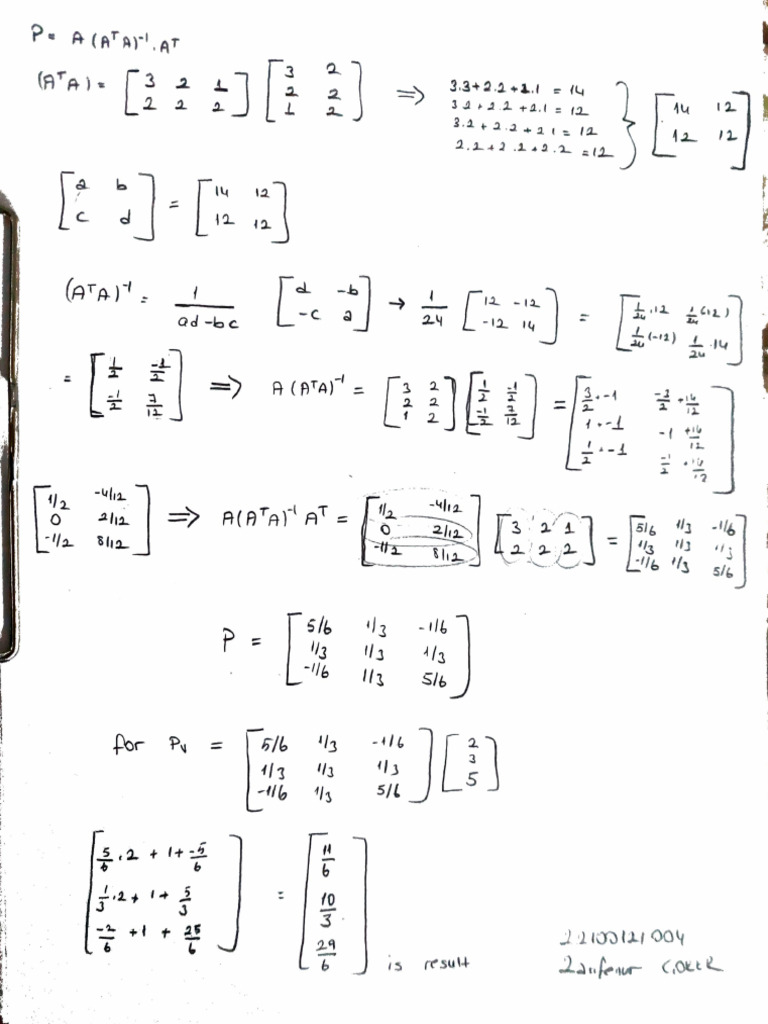 P = A (AᵀA)⁻¹ . Aᵀ
(AᵀA) = [3 2 1; 2 2 2] [3 2; 2 2; 1 2] ⇒ 3.3+2.2+1.1 = 14
3.2+2.2+2.1 = 12
3.2+2.2+2.1 = 12
2.2+2.2+2.2 = 12 } [14 12; 12 12]
[a b; c d] = [14 12; 12 12]
(AᵀA)⁻¹ = 1/(ad-bc) [d -b; -c a] → 1/24 [12 -12; -12 14] = [1/24 .12 1/24 (-12); 1/24 (-12) 1/24 .14]
= [1/2 -1/2; -1/2 7/12] ⇒ A (AᵀA)⁻¹ = [3 2; 2 2; 1 2] [1/2 -1/2; -1/2 7/12] = [3/2 + -1 -3/2 + 14/12; 1 + -1 -1 + 14/12; 1/2 + -1 -1/2 + 14/12]
[1/2 -4/12; 0 2/12; -1/2 8/12] ⇒ A(AᵀA)⁻¹ Aᵀ = [1/2 -4/12; 0 2/12; -1/2 8/12] [3 2 1; 2 2 2] = [5/6 1/3 -1/6; 1/3 1/3 1/3; -1/6 1/3 5/6]
P = [5/6 1/3 -1/6; 1/3 1/3 1/3; -1/6 1/3 5/6]
for Pv = [5/6 1/3 -1/6; 1/3 1/3 1/3; -1/6 1/3 5/6] [2; 3; 5]
[5/6 .2 + 1 + -5/6; 1/3 .2 + 1 + 5/3; -2/6 + 1 + 25/6] = [11/6; 10/3; 29/6] is result
22100121004